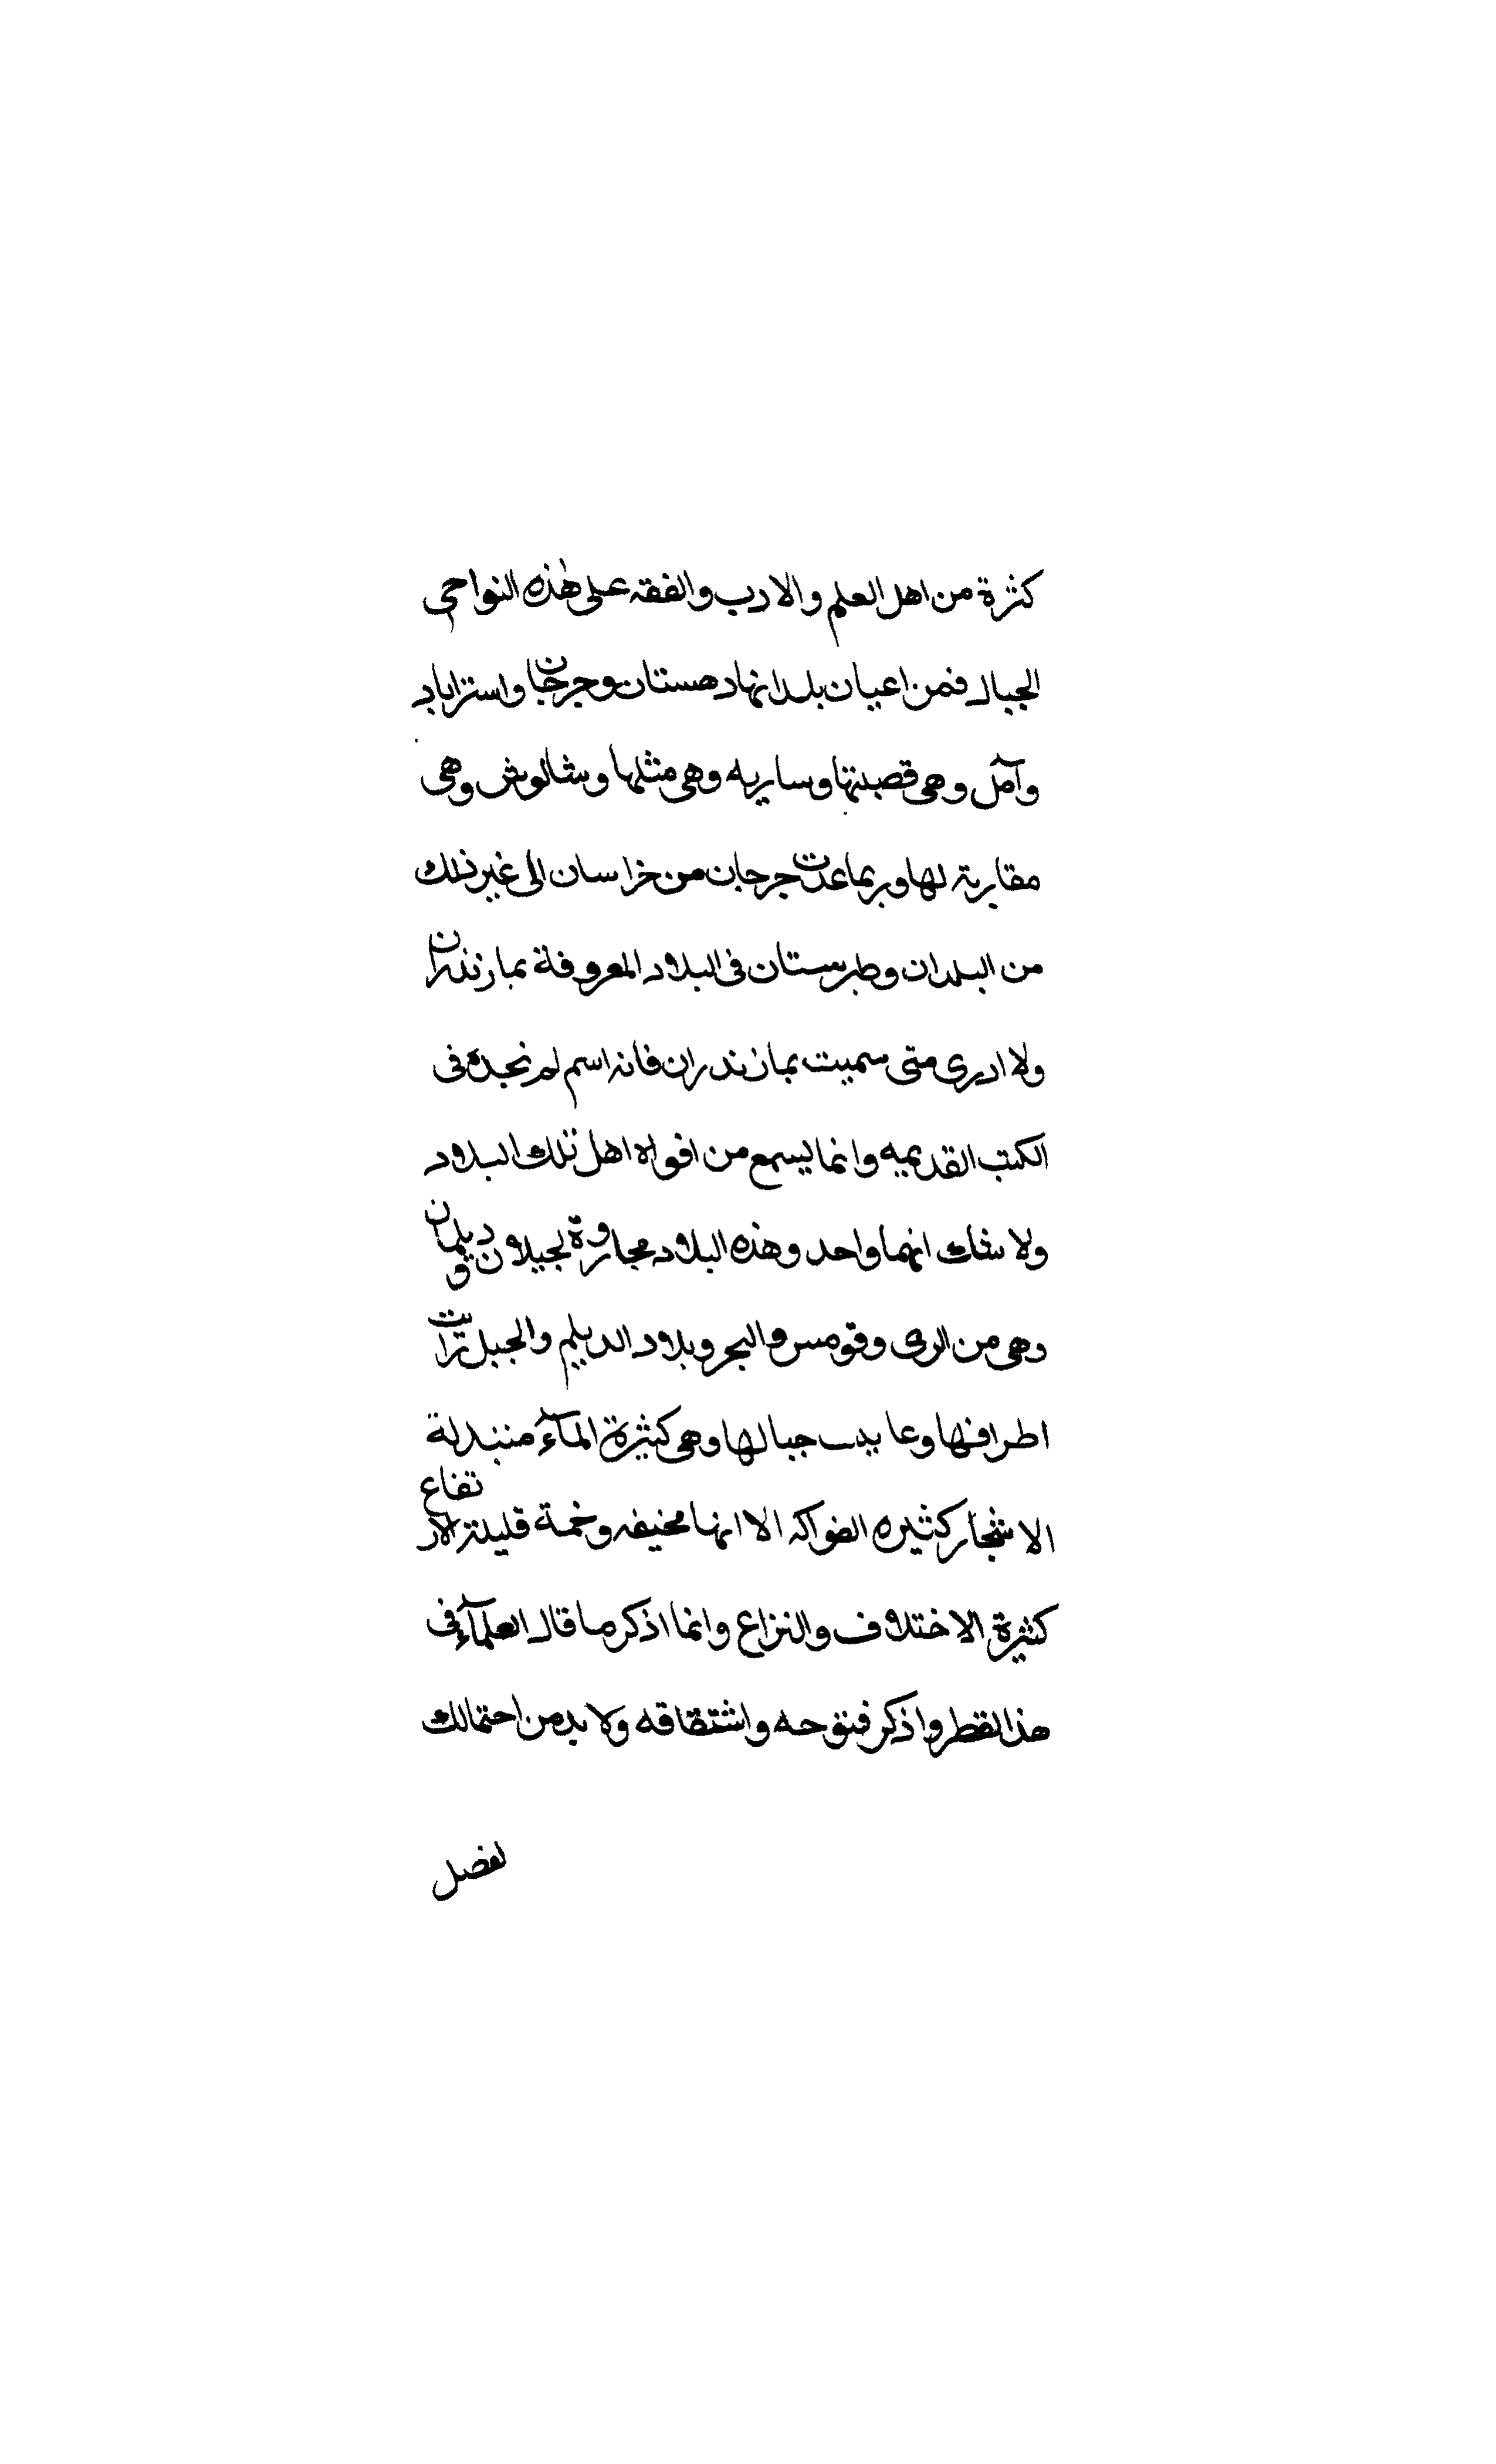 كثرة من اهل العلم والادب والفقه على هذه النواحى
الجبال فمن اعيان بلدانها دهستان وجرجان واستراباد
وآمل وهى قصبتها وساريه وهى مثلها وشالوش وهى
مقاربة لها وربما عدت جرجان من خراسان الى غير ذلك
من البلدان وطبرستان فى البلاد المعروفة بمازندران
ولا ادرى متى سميت بمازندران فانه اسم لم نجده فى
الكتب القديمه وانما يسمع من افواه اهل تلك البلاد
ولا شك انهما واحد وهذه البلاد مجاورة لجيلان و ديلمان
وهى من الرى وقومس والبحر وبلاد الديلم والجبل رايت
اطرافها وعاينت جبالها وهى كثيرة المآء متهدلة
الاشجار كثيره الفواكه الا انها مخيفه وخمة قليلة الارتفاع
كثيرة الاختلاف والنزاع وانما اذكر ما قال العلمآء فى
هذا القطر واذكر فتوحه واشتقاقه ولا بد من احتمالك
لفصل